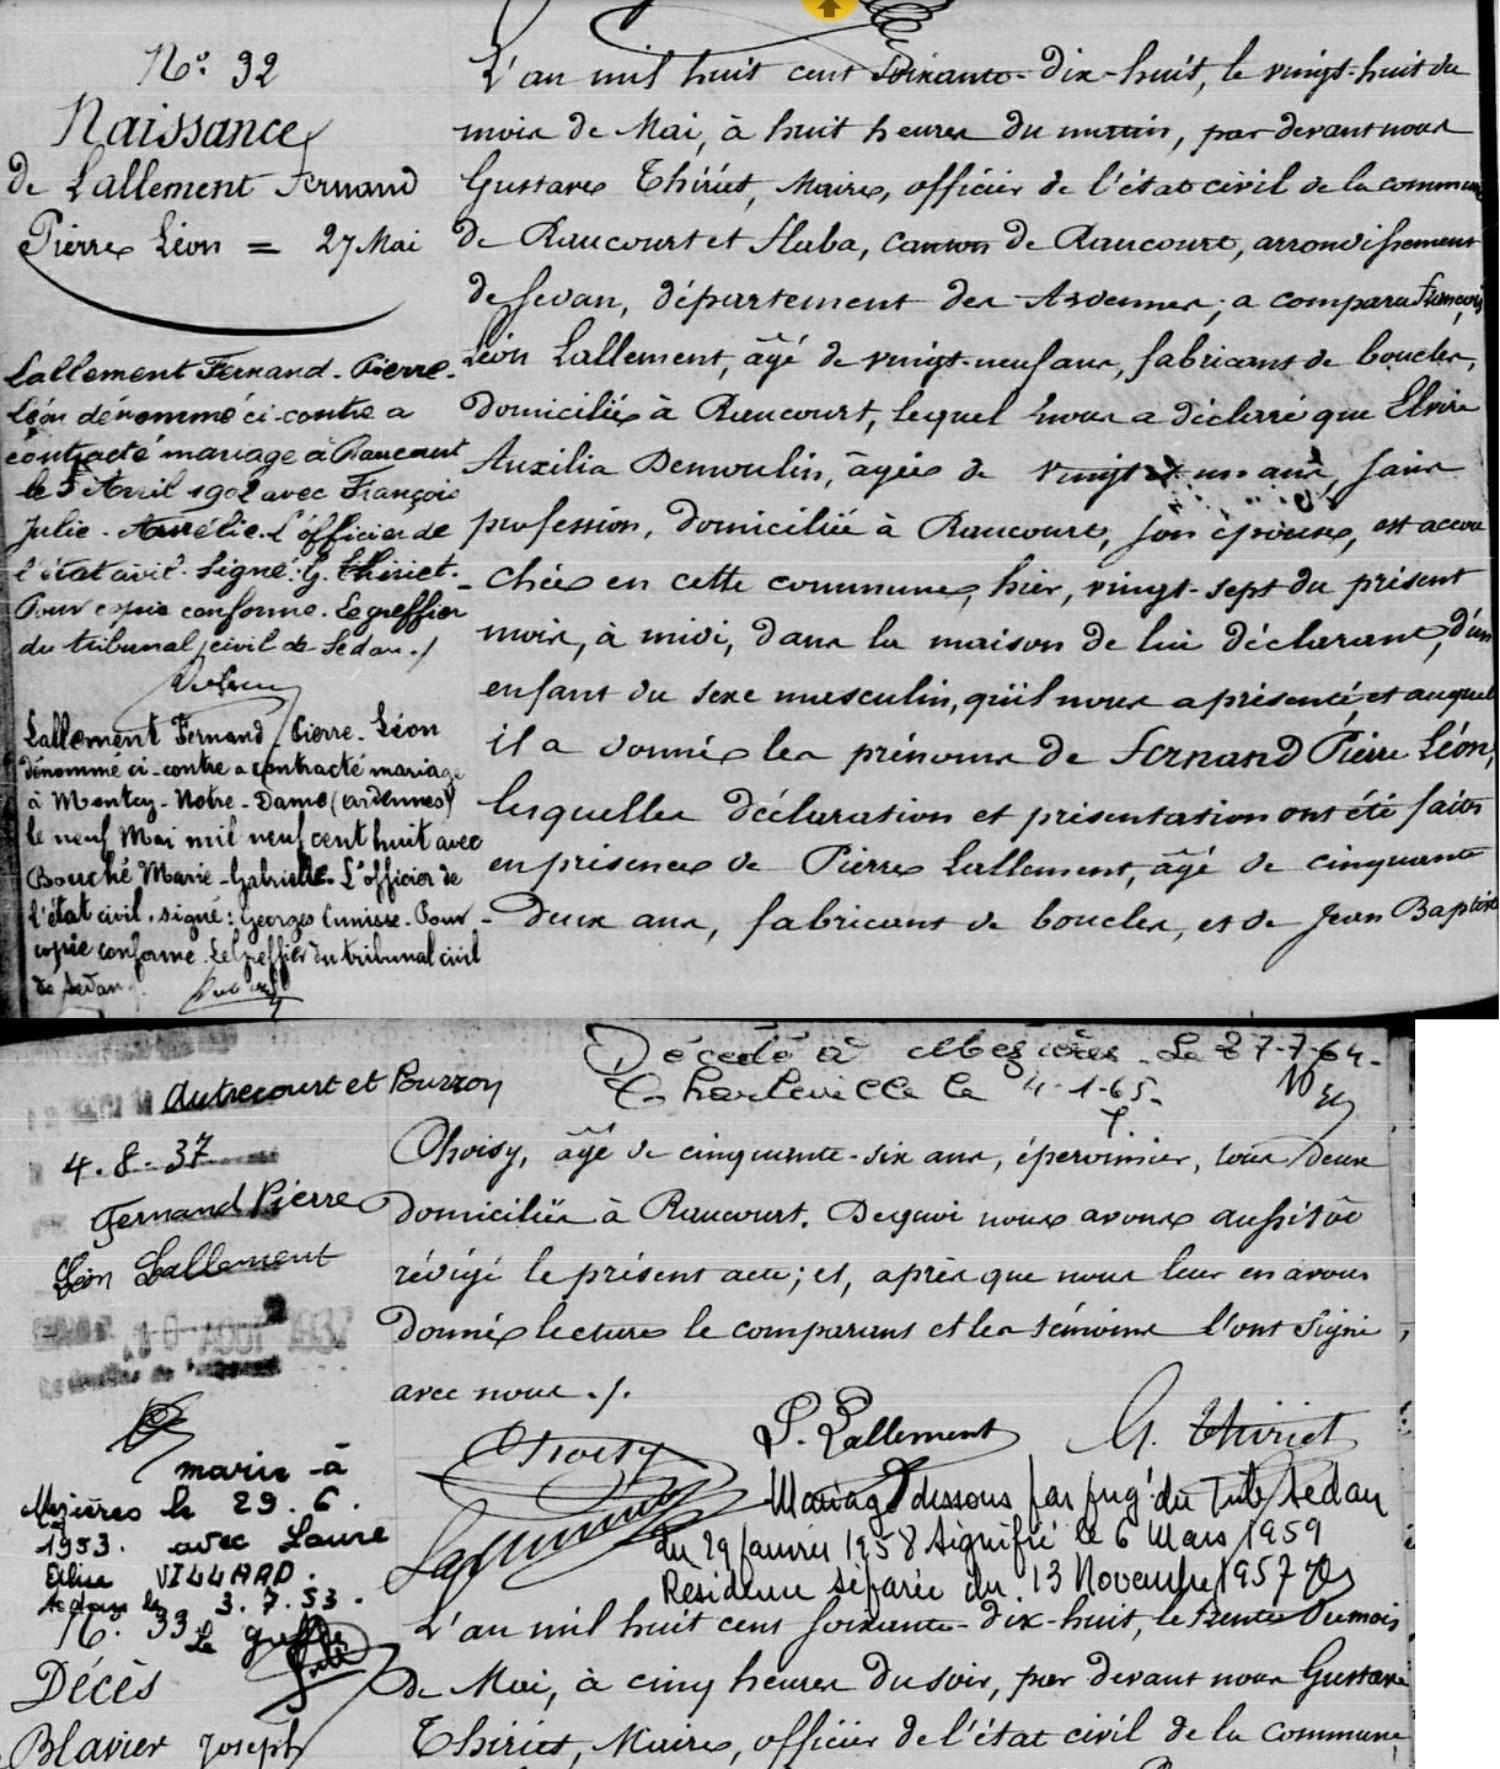 N.º 32
Naissance
de Lallement Fernand
Pierre Léon = 27 Mai
Lallement Fernand-Pierre-
Léon dénommé ci-contre a
contracté mariage à Raucourt
le 5 Avril 1902 avec François
Julie-Aurélie. L'officier de
l'état civil. Signé: G. Thiriet.
Pour copie conforme. Le greffier
du tribunal civil de Sedan ./
Lallement Fernand Pierre-Léon
dénommé ci-contre a contracté mariage
à Montcy-Notre-Dame (Ardennes)
le neuf Mai mil neuf cent huit avec
Bouché Marie-Gabrielle. L'officier de
l'état civil. signé: Georges Cunisse. Pour
copie conforme. Le Greffier du tribunal civil
de Sedan.
L'an mil huit cent soixante-dix-huit, le vingt-huit du
mois de Mai, à huit heures du matin, par devant nous
Gustave Thiriet, Maire, officier de l'état civil de la commune
de Raucourt et Flaba, canton de Raucourt, arrondissement
de Sedan, département des Ardennes, a comparu François
Léon Lallement, âgé de vingt-neuf ans, fabricant de boucles,
domicilié à Raucourt, lequel nous a déclaré que Elvire
Auxilia Demoulin, âgée de vingt et un ans, sans
profession, domiciliée à Raucourt, son épouse, est accou
-chée en cette commune, hier, vingt-sept du présent
mois, à midi, dans la maison de lui déclarant, d'un
enfant du sexe masculin, qu'il nous a présenté, et auquel
il a donné les prénoms de Fernand Pierre Léon,
lesquelles déclaration et présentation ont été faites
en présence de Pierre Lallement, âgé de cinquante
-deux ans, fabricant de boucles, et de Jean Baptiste
Décédé à Mézières le 27-7-64-
Charleville le 4-1-65-
Autrecourt et Pourron
4.8.37
Fernand Pierre
Léon Lallement
10 AOUT 1937
Choisy, âgé de cinquante-six ans, éperonnier, tous deux
domiciliés à Raucourt. De quoi nous avons aussitôt
rédigé le présent acte; et, après que nous leur en avons
donné lecture le comparant et les témoins l'ont signé
avec nous ./.
Choisy P. Lallement G. Thiriet
Lallement
marié à
Mézières le 29.6.
1953. avec Laure
Elise VILLARD.
Sedan le 3.7.53.
Le greffier
Mariage dissous par jug.t du Trib. Sedan
du 29 janvier 1958 Signifié le 6 Mars 1959
Résidence séparée du 13 Novembre 1957
N. 33
Décès
Blavier Joseph
L'an mil huit cent soixante-dix-huit, le trente du mois
de Mai, à cinq heures du soir, par devant nous Gustave
Thiriet, Maire, officier de l'état civil de la commune